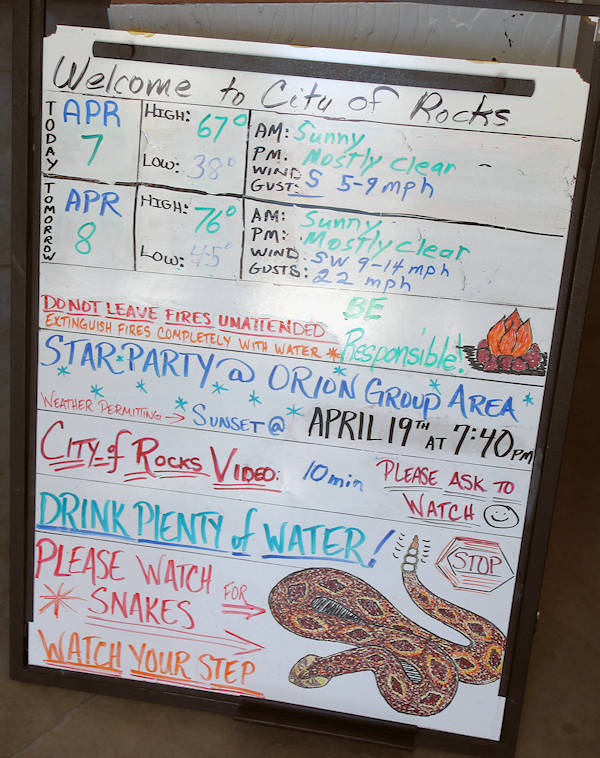 Welcome to City of Rocks
TODAY
APR 7
HIGH: 67°
LOW: 38°
AM: Sunny
PM. Mostly clear
WIND S 5-9 mph
GUST:
TOMORROW
APR 8
HIGH: 76°
LOW: 45°
AM: Sunny
PM: Mostly clear
WIND: SW 9-14 mph
GUSTS: 22 mph
DO NOT LEAVE FIRES UNATTENDED
EXTINGUISH FIRES COMPLETELY WITH WATER *
BE
Responsible!
STAR*PARTY @ ORION GROUP AREA
WEATHER PERMITTING → SUNSET @ APRIL 19TH AT 7:40 PM
CITY of ROCKS VIDEO: 10 min PLEASE ASK TO
WATCH ☺
DRINK PLENTY of WATER!
PLEASE WATCH FOR
* SNAKES
WATCH YOUR STEP
STOP